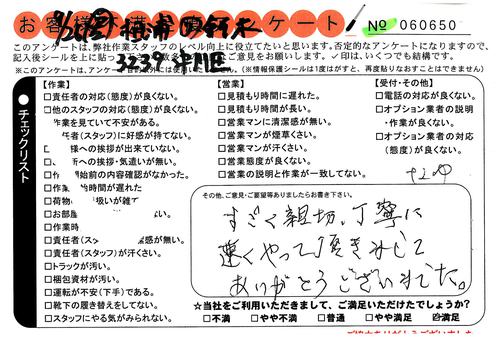 お客様 アンケート № 060650
このアンケートは、弊社作業スタッフのレベル向上に役立てたいと思います。否定的なアンケートになりますので、
記入後シールを上に貼って
をお願いします。✓印は、いくつでも結構です。
(※情報保護シールは1度がすと、再度貼りなおすことはできません)
3239
チェックリスト
【作業】
□責任者の対応(態度)が良くない。
□他のスタッフの対応(態度)が良くない。
作業を見ていて不安がある。
者(スタッフ)に好感が持てない。
様への挨拶が出来ていない。
への挨拶・気遣いが無い。
始前の内容確認がなかった。
□作業 始時間が遅れた
□荷物 扱いが雑で
□お部屋 ない。
□作業時
□責任者(ス 感が無い。
□責任者(スタッフ)が汗くさい。
□トラックが汚い。
□梱包資材が汚い。
□運転が不安(下手)である。
□靴下の履き替えをしてない。
□スタッフにやる気がみられない。
【営業】
□見積もり時間に遅れた。
□見積もり時間が長い。
□営業マンに清潔感が無い。
□営業マンが煙草くさい。
□営業マンが汗くさい。
□営業態度が良くない。
□営業の説明と作業が一致してない。
【受付・その他】
□電話の対応が良くない。
□オプション業者の説明
・作業が良くない。
□オプション業者の対応
(態度)が良くない。
その他、ご意見・ご要望等ありましたらお書き下さい。
すごく親切、丁寧に
速くやって頂きまして
ありがとうございました。
☆当社をご利用いただきまして、ご満足いただけたでしょうか?
□不満 □やや不満 □普通 □やや満足 ☑満足